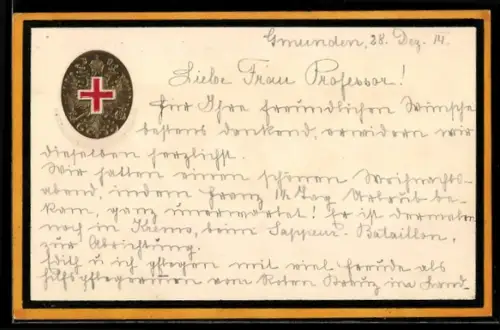 Gmunden, 28. Dez. 14.
Liebe Frau Professor!
Für Ihre freundlichen Wünsche
bestens dankend, erwidern wir
dieselben herzlichst.
Wir hatten einen schönen Weihnachts-
abend, indem Franz 14 Tag Urlaub be-
kam, ganz unerwartet! Er ist dermalen
noch in Krems, beim Sappeur-Bataillon,
zur Abrichtung.
Edith u ich pflegen mit viel Freude als
Hilfspflegerinnen vom Roten Kreuz im Land-